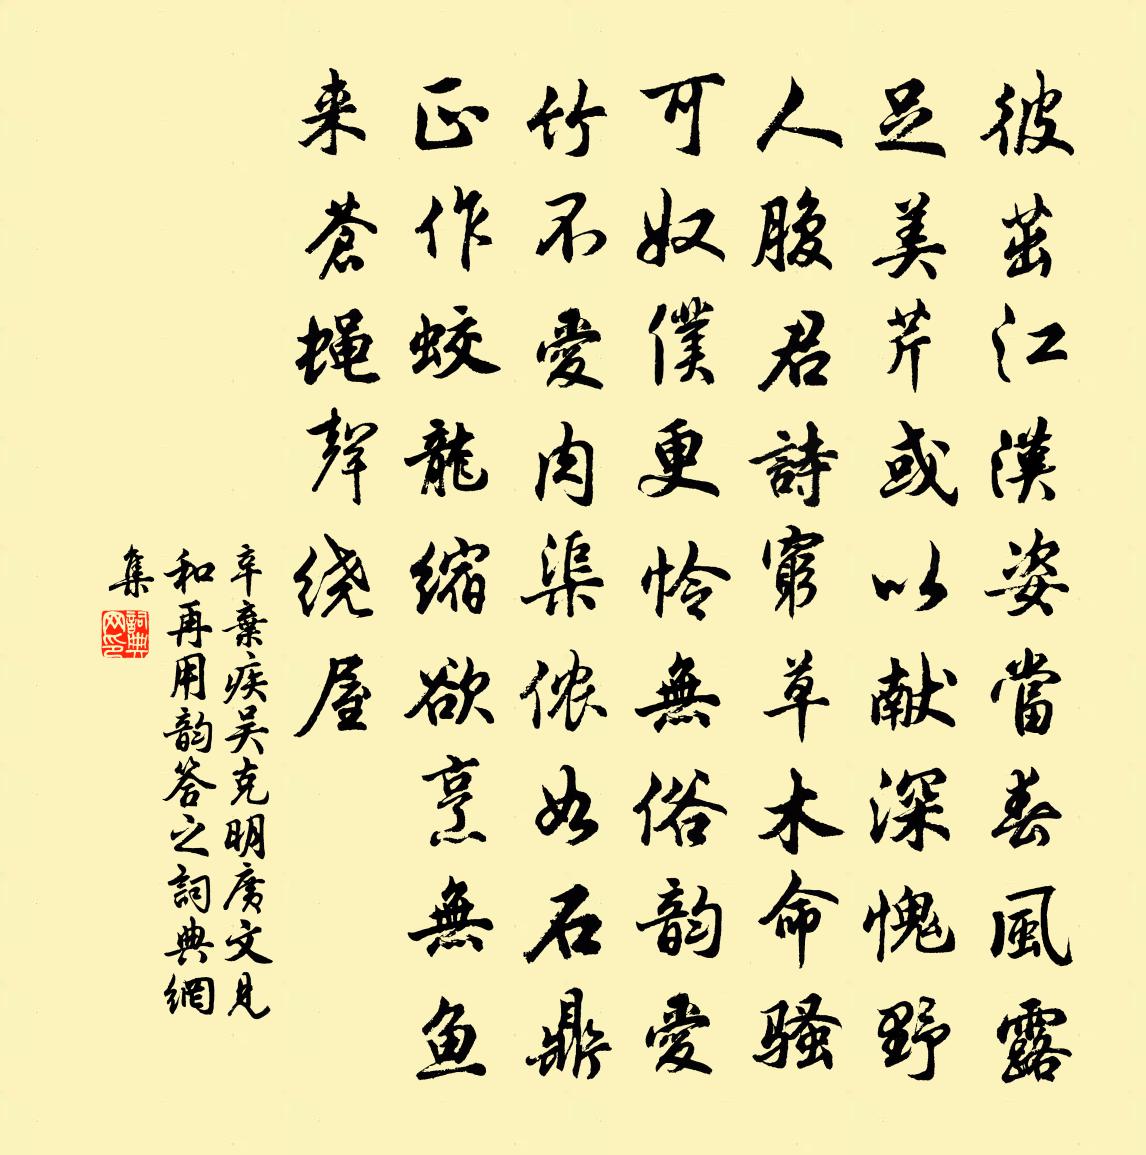 彼茁江漢姿當春風露
足美芹或以献深愧野
人腹君詩窮草木命骚
可奴僕更怜無俗韵愛
竹不愛肉渠侬如石鼎
正作蛟龍缩欲烹無鱼
来蒼蝇聲绕屋
辛棄疾吴克明廣文見
和再用韵答之詞典網
集
詞典
网印